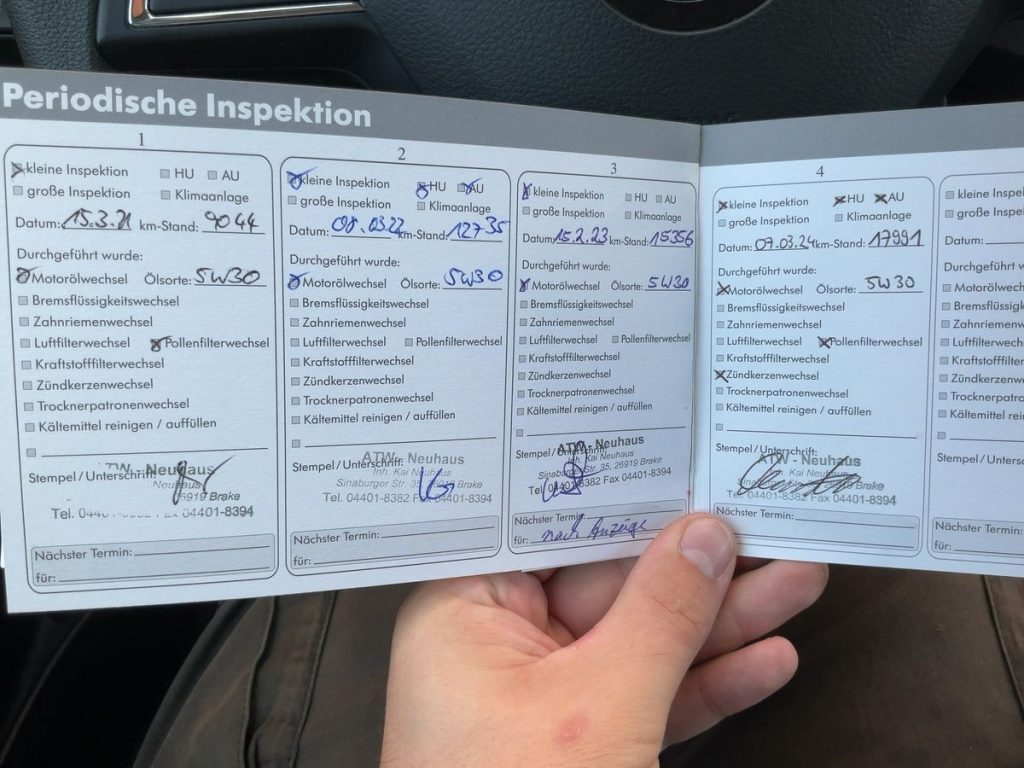 Periodische Inspektion
1
kleine Inspektion HU AU
große Inspektion Klimaanlage
Datum: 15.3.21 km-Stand: 9044
Durchgeführt wurde:
Motorölwechsel Ölsorte: 5W30
Bremsflüssigkeitswechsel
Zahnriemenwechsel
Luftfilterwechsel Pollenfilterwechsel
Kraftstofffilterwechsel
Zündkerzenwechsel
Trocknerpatronenwechsel
Kältemittel reinigen / auffüllen
Stempel/Unterschrift:
TW - Neuhaus
Neuhaus
26919 Brake
Tel. 044 04401-8394
Nächster Termin:
für:
2
kleine Inspektion HU AU
große Inspektion Klimaanlage
Datum: 08.03.22 km-Stand: 12735
Durchgeführt wurde:
Motorölwechsel Ölsorte: 5W30
Bremsflüssigkeitswechsel
Zahnriemenwechsel
Luftfilterwechsel Pollenfilterwechsel
Kraftstofffilterwechsel
Zündkerzenwechsel
Trocknerpatronenwechsel
Kältemittel reinigen / auffüllen
Stempel/Unterschrift:
ATW - Neuhaus
Inh. Kai Neuhaus
Sinaburger Str. 35, 26919 Brake
Tel. 04401-8382 Fax 04401-8394
Nächster Termin:
für:
3
kleine Inspektion HU AU
große Inspektion Klimaanlage
Datum: 15.2.23 km-Stand: 15356
Durchgeführt wurde:
Motorölwechsel Ölsorte: 5W30
Bremsflüssigkeitswechsel
Zahnriemenwechsel
Luftfilterwechsel Pollenfilterwechsel
Kraftstofffilterwechsel
Zündkerzenwechsel
Trocknerpatronenwechsel
Kältemittel reinigen / auffüllen
Stempel/Unterschrift:
ATW - Neuhaus
Inh. Kai Neuhaus
Sinaburger Str. 35, 26919 Brake
Tel. 04401-8382 Fax 04401-8394
Nächster Termin:
für: nach Anzeige
4
kleine Inspektion HU AU
große Inspektion Klimaanlage
Datum: 07.03.24 km-Stand: 17991
Durchgeführt wurde:
Motorölwechsel Ölsorte: 5W30
Bremsflüssigkeitswechsel
Zahnriemenwechsel
Luftfilterwechsel Pollenfilterwechsel
Kraftstofffilterwechsel
Zündkerzenwechsel
Trocknerpatronenwechsel
Kältemittel reinigen / auffüllen
Stempel/Unterschrift:
ATW - Neuhaus
Inh. Kai Neuhaus
Sinaburger Str. 35, 26919 Brake
Tel. 04401-8382 Fax 04401-8394
Nächster Termin:
für:
kleine Inspektion
große Inspektion
Datum:
Durchgeführt wurde:
Motorölwechsel
Bremsflüssigkeitswechsel
Zahnriemenwechsel
Luftfilterwechsel
Kraftstofffilterwechsel
Zündkerzenwechsel
Trocknerpatronenwechsel
Kältemittel
Stempel/Unterschrift
Nächster Termin
für: